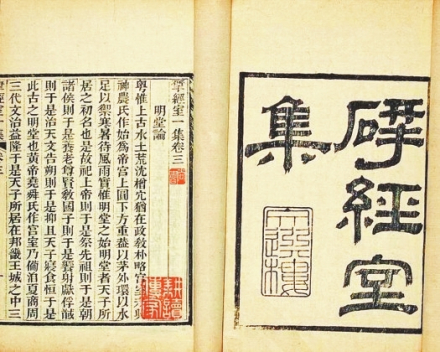 揅經室
集
文選樓
揅經室一集卷三
明堂論
粤惟上古水土荒沈橧穴猶在政敎朴略宫室未興
神農氏作始爲帝宫上圓下方重蓋以茅外環以水
足以禦寒暑待風雨實惟明堂之始明堂者天子所
居之初名也是故祀上帝則于是祭先祖則于是朝
諸侯則于是養老尊賢敎國子則于是饗射獻俘馘
則于是治天文告朔則于是抑且天子寢食恒于是
此古之明堂也黄帝堯舜氏作宫室乃備洎夏商周
三代文治益隆于是天子所居在邦畿王城之中三
揅經室一集 卷三